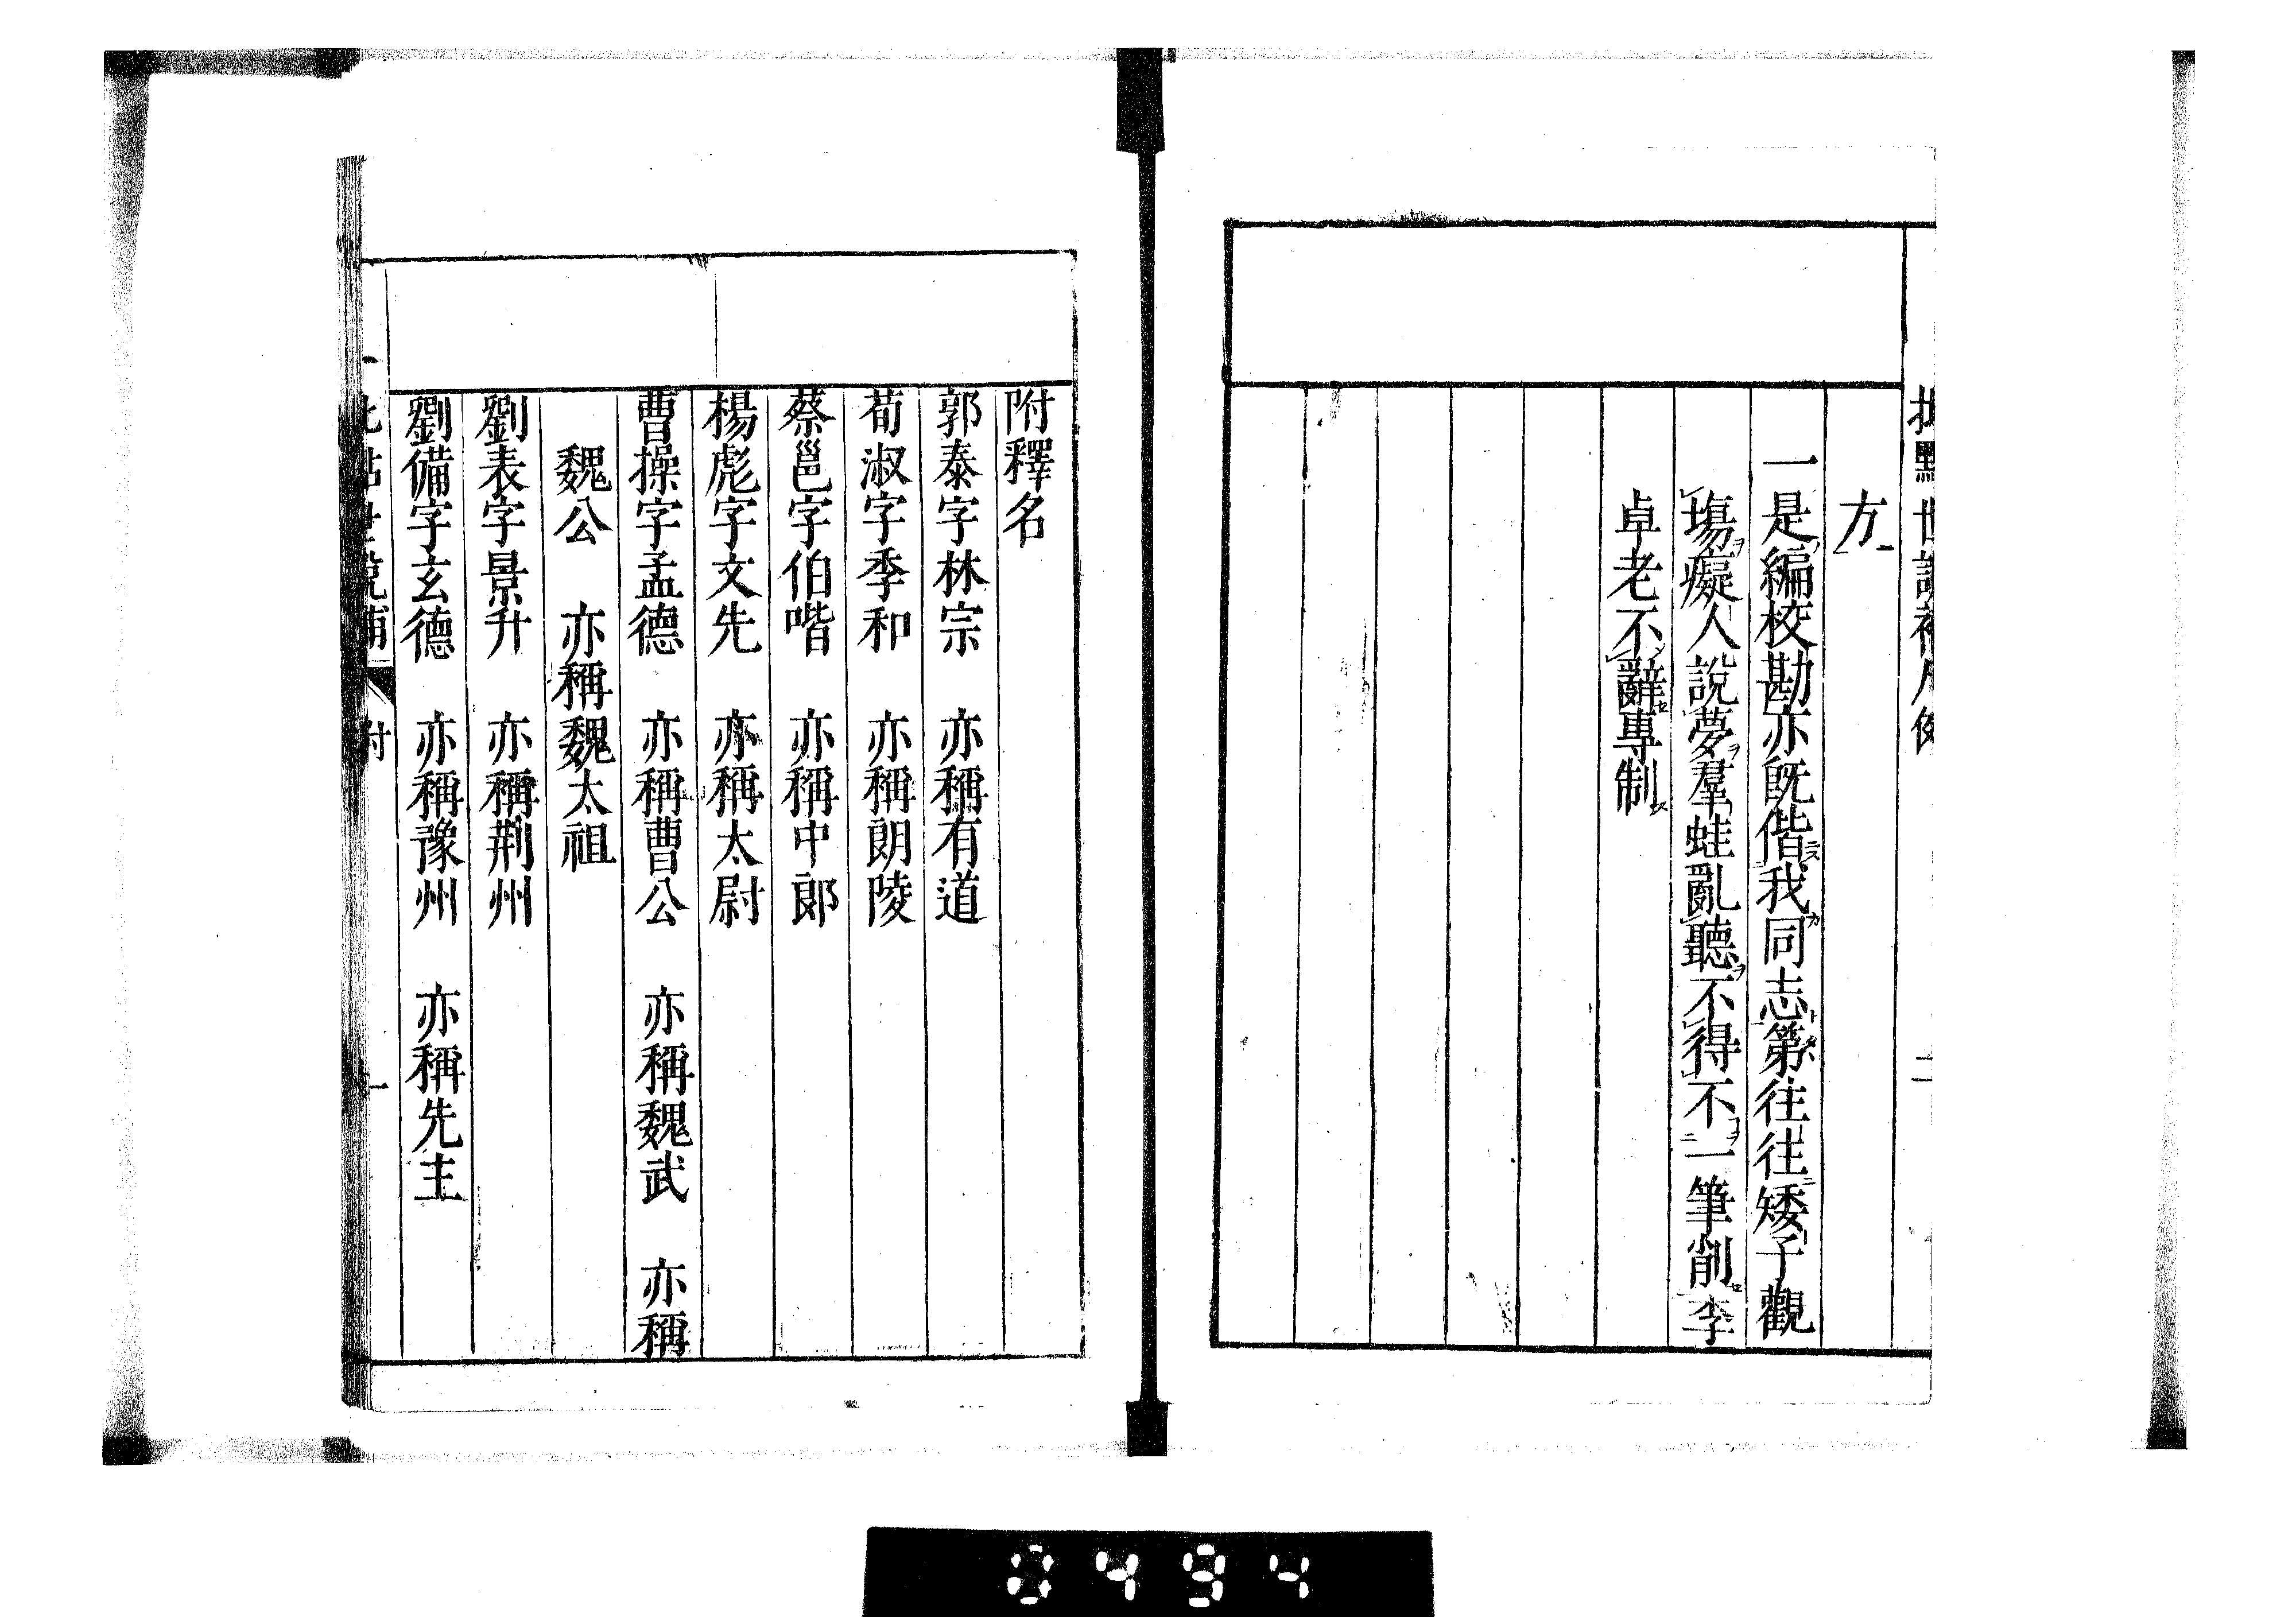 方
一是編校勘亦旣偕我同志第往往矮子觀
塲癡人說夢羣蛙亂聽不得不一筆削李
卓老不辭專制
附釋名
郭泰字林宗　亦稱有道
荀淑字季和　亦稱朗陵
蔡邕字伯喈　亦稱中郎
楊彪字文先　亦稱太尉
曹操字孟德　亦稱曹公　亦稱魏武　亦稱
魏公　亦稱魏太祖
劉表字景升　亦稱荆州
劉備字玄德　亦稱豫州　亦稱先主
0494